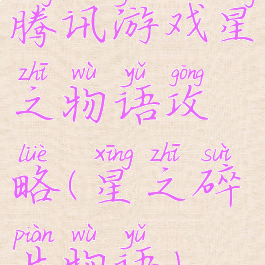 腾讯游戏星
zhī wù yǔ gōng
之物语攻
lüè xīng zhī suì
略(星之碎
piàn wù yǔ
片物语)